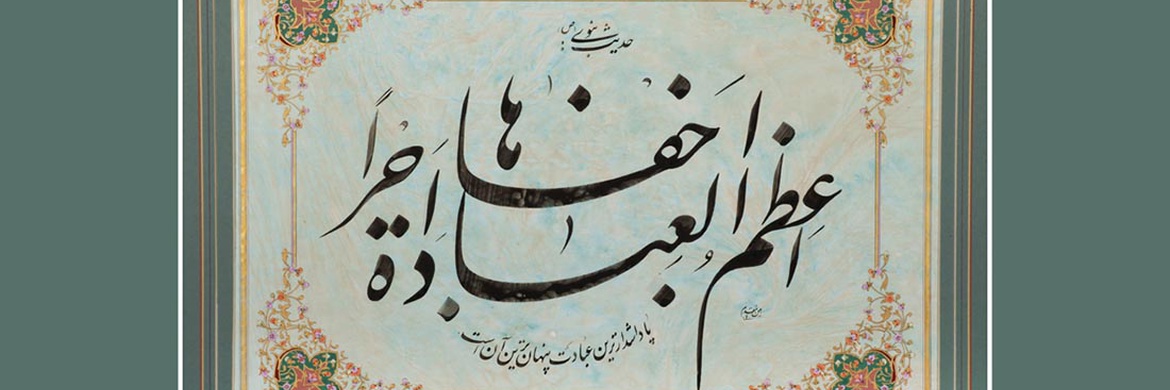 حدیث نبوی ص :
اَعظم العبادة اجراً اخفاها
پاداشدارترین عبادت پنهان ترین آن است